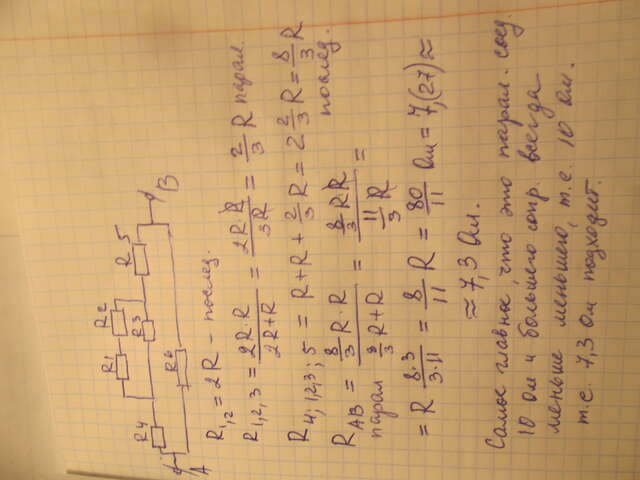 R1 R2
R4 R3 R5
A R6 B
R1,2 = 2R - послед.
R1,2,3 = 2R·R / 2R+R = 2R·R / 3R = 2/3 R парал.
R4; 1,2,3; 5 = R+R+ 2/3 R = 2 2/3 R = 8/3 R
послед.
RAB = 8/3 R·R / 8/3 R+R = 8/3 RR / 11/3 R =
парал
= R 8·3 / 3·11 = 8/11 R = 80/11 Ом = 7,(27) ≈
≈ 7,3 Ом.
Самое главное, что это парал. соед.
10 Ом и большего сопр. всегда
меньше меньшего, т.е. 10 Ом.
т.е. 7,3 Ом подходит.